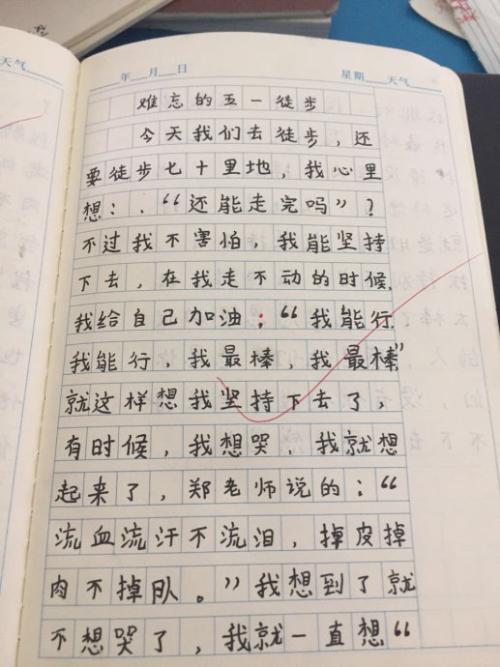 天气
年 月 日 星期 天气
难忘的五一徒步
今天我们去徒步，还
要徒步七十里地，我心里
想：“还能走完吗”？
不过我不害怕，我能坚持
下去，在我走不动的时候，
我给自己加油：“我能行，
我能行，我最棒，我最棒”
就这样想我坚持下去了，
有时候，我想哭，我就想
起来了，郑老师说的：“
流血流汗不流泪，掉皮掉
肉不掉队。”我想到了就
不想哭了，我就一直想“